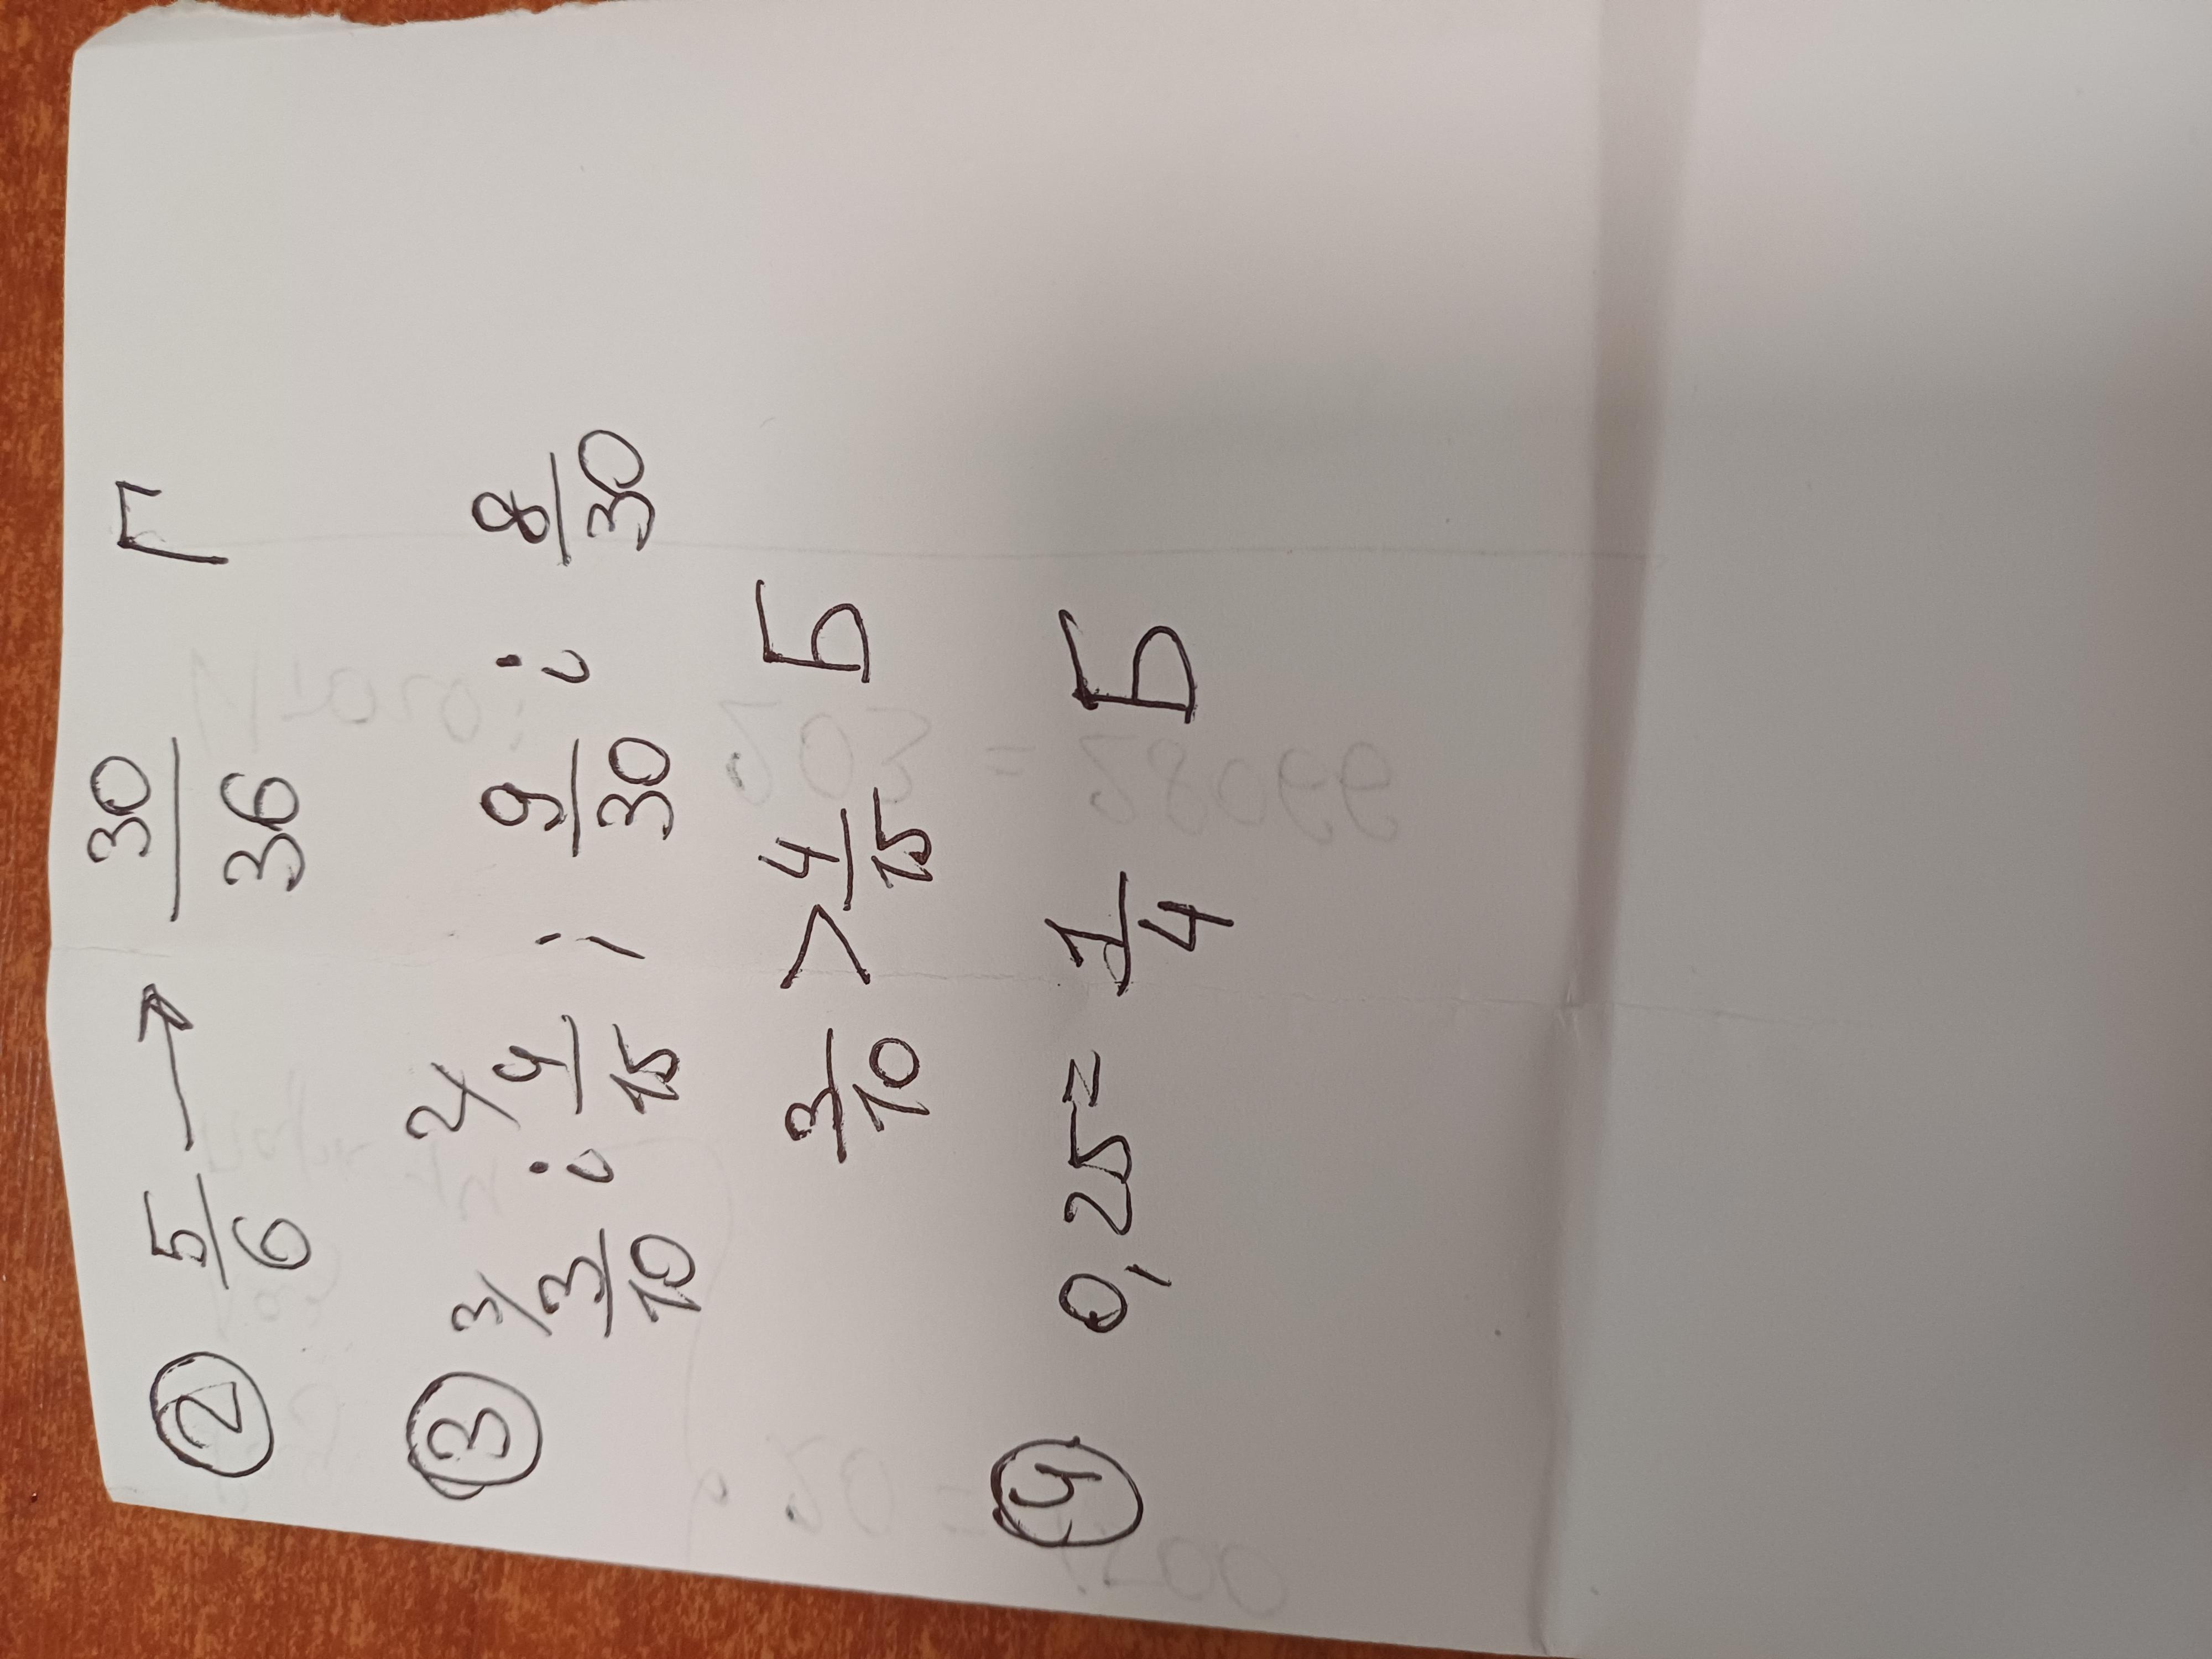 ② 5/6 → 30/36 Г
③ 3/ 3/10 i 2/ 4/15 ; 9/30 i 8/30
3/10 > 4/15 Б
④ 0,25 = 1/4 Б